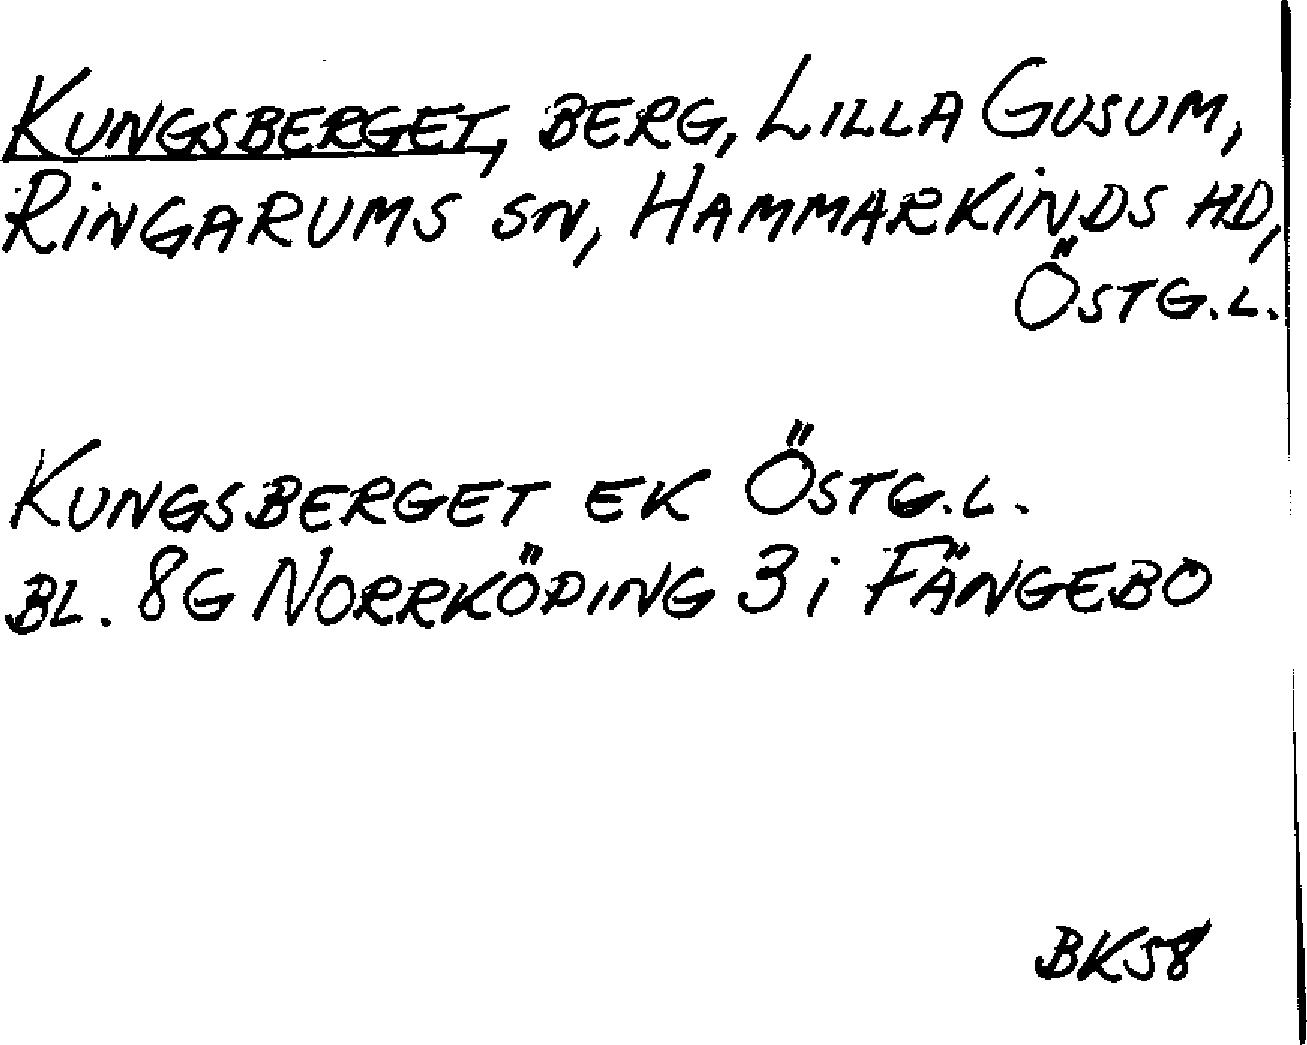 KUNGSBERGET, BERG, LILLA GUSUM,
RINGARUMS SN, HAMMARKINDS HD,
ÖSTG.L.
KUNGSBERGET EK ÖSTG.L.
BL. 8G NORRKÖPING 3i FÄNGEBO
BK58